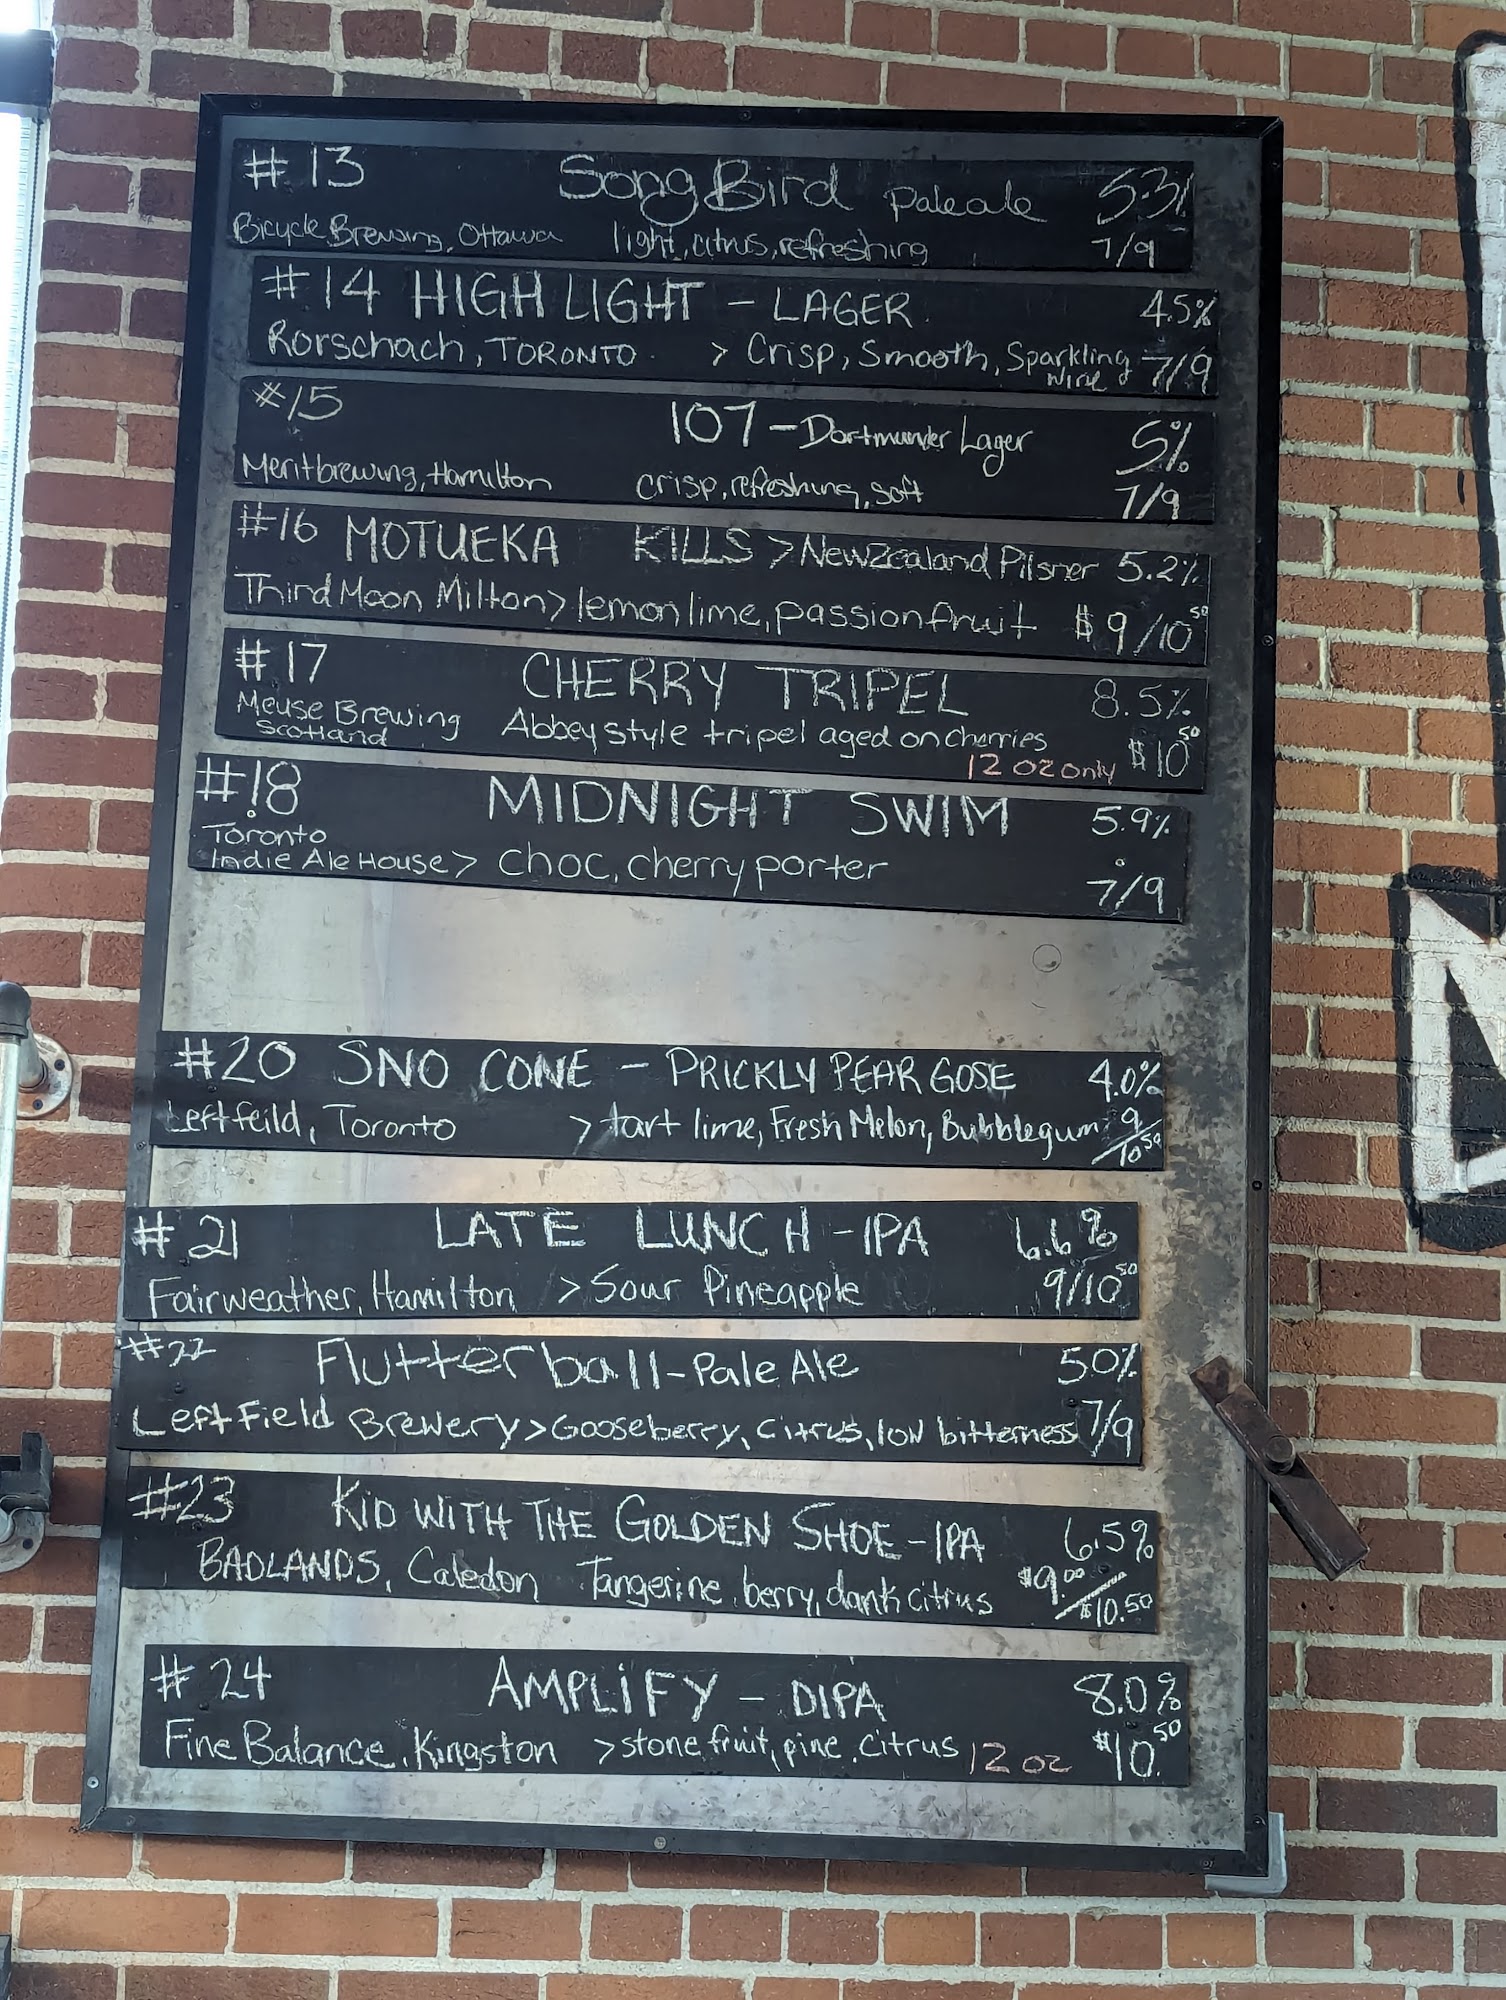 #13 SongBird Pale ale 5.3%
Bicycle Brewing, Ottawa light, citrus, refreshing 7/9
#14 HIGH LIGHT - LAGER 4.5%
Rorschach, TORONTO > Crisp, Smooth, Sparkling wine 7/9
#15 107 - Dortmunder Lager 5%
Merit brewing, Hamilton crisp, refreshing, soft 7/9
#16 MOTUEKA KILLS > New Zealand Pilsner 5.2%
Third Moon Milton > lemon lime, passionfruit $9/10 50
#17 CHERRY TRIPEL 8.5%
Meuse Brewing Abbey style tripel aged on cherries $10 50
Scotland 12 oz only
#18 MIDNIGHT SWIM 5.9%
Toronto
Indie Ale House > choc, cherry porter 7/9
#20 SNO CONE - PRICKLY PEAR GOSE 4.0%
Leftfeild, Toronto > tart lime, Fresh Melon, Bubblegum 9/10 50
#21 LATE LUNCH - IPA 6.6%
Fairweather, Hamilton > Sour Pineapple 9/10 50
#22 Flutterball - Pale Ale 5.0%
Left Field Brewery > Gooseberry, Citrus, low bitterness 7/9
#23 KID WITH THE GOLDEN SHOE - IPA 6.5%
BADLANDS, Caledon Tangerine, berry, dank citrus $9.00/$10.50
#24 AMPLiFY - DIPA 8.0%
Fine Balance, Kingston > stone fruit, pine, citrus 12 oz $10.50